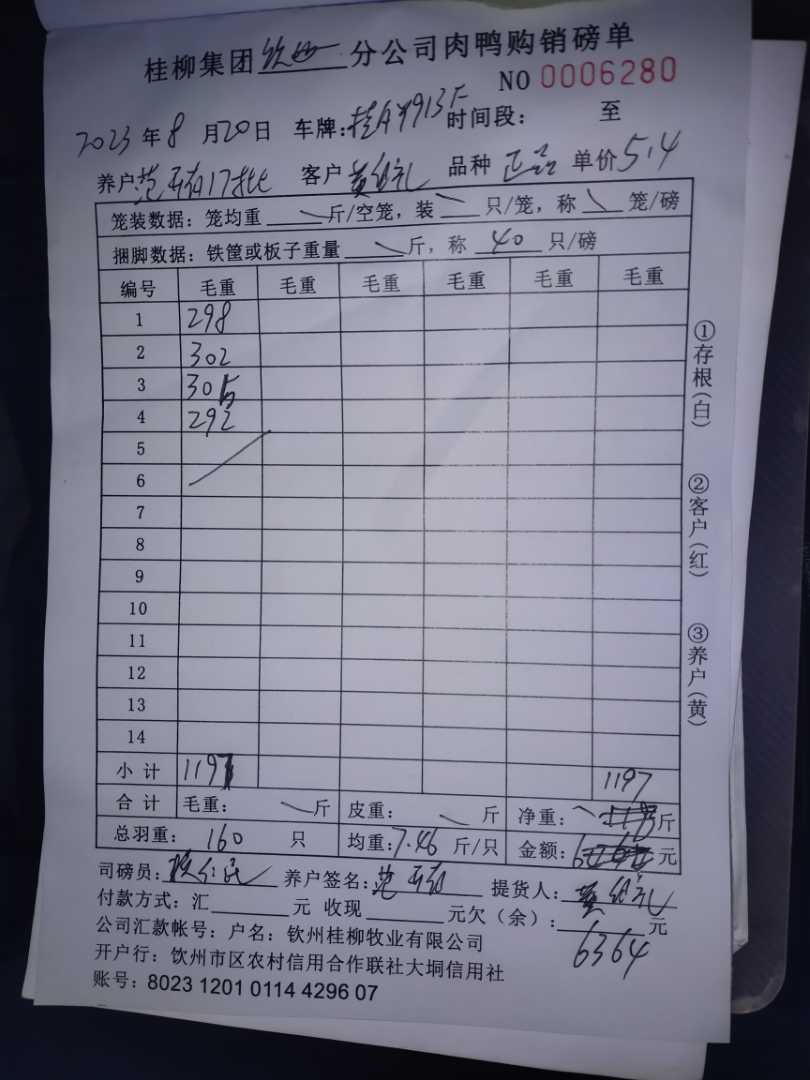 桂柳集团 钦州 分公司肉鸭购销磅单
NO 0006280
2023 年 8 月 20 日 车牌: 时间段: 至
养户 17批 客户 黄 礼 品种 正品 单价 5.4
笼装数据: 笼均重 斤/空笼, 装 只/笼, 称 笼/磅
捆脚数据: 铁筐或板子重量 斤, 称 40 只/磅
编号 毛重 毛重 毛重 毛重 毛重 毛重
1 298
2 302
3 305
4 292
5
6
7
8
9
10
11
12
13
14
小计 1197 1197
合计 毛重: 斤 皮重: 斤 净重: 斤
总羽重: 160 只 均重: 7.46 斤/只 金额: 元
司磅员: 养户签名: 提货人:
付款方式: 汇 元 收现 元欠(余): 元
6364
公司汇款帐号: 户名: 钦州桂柳牧业有限公司
开户行: 钦州市区农村信用合作联社大垌信用社
账号: 8023 1201 0114 4296 07
①存根(白)
②客户(红)
③养户(黄)